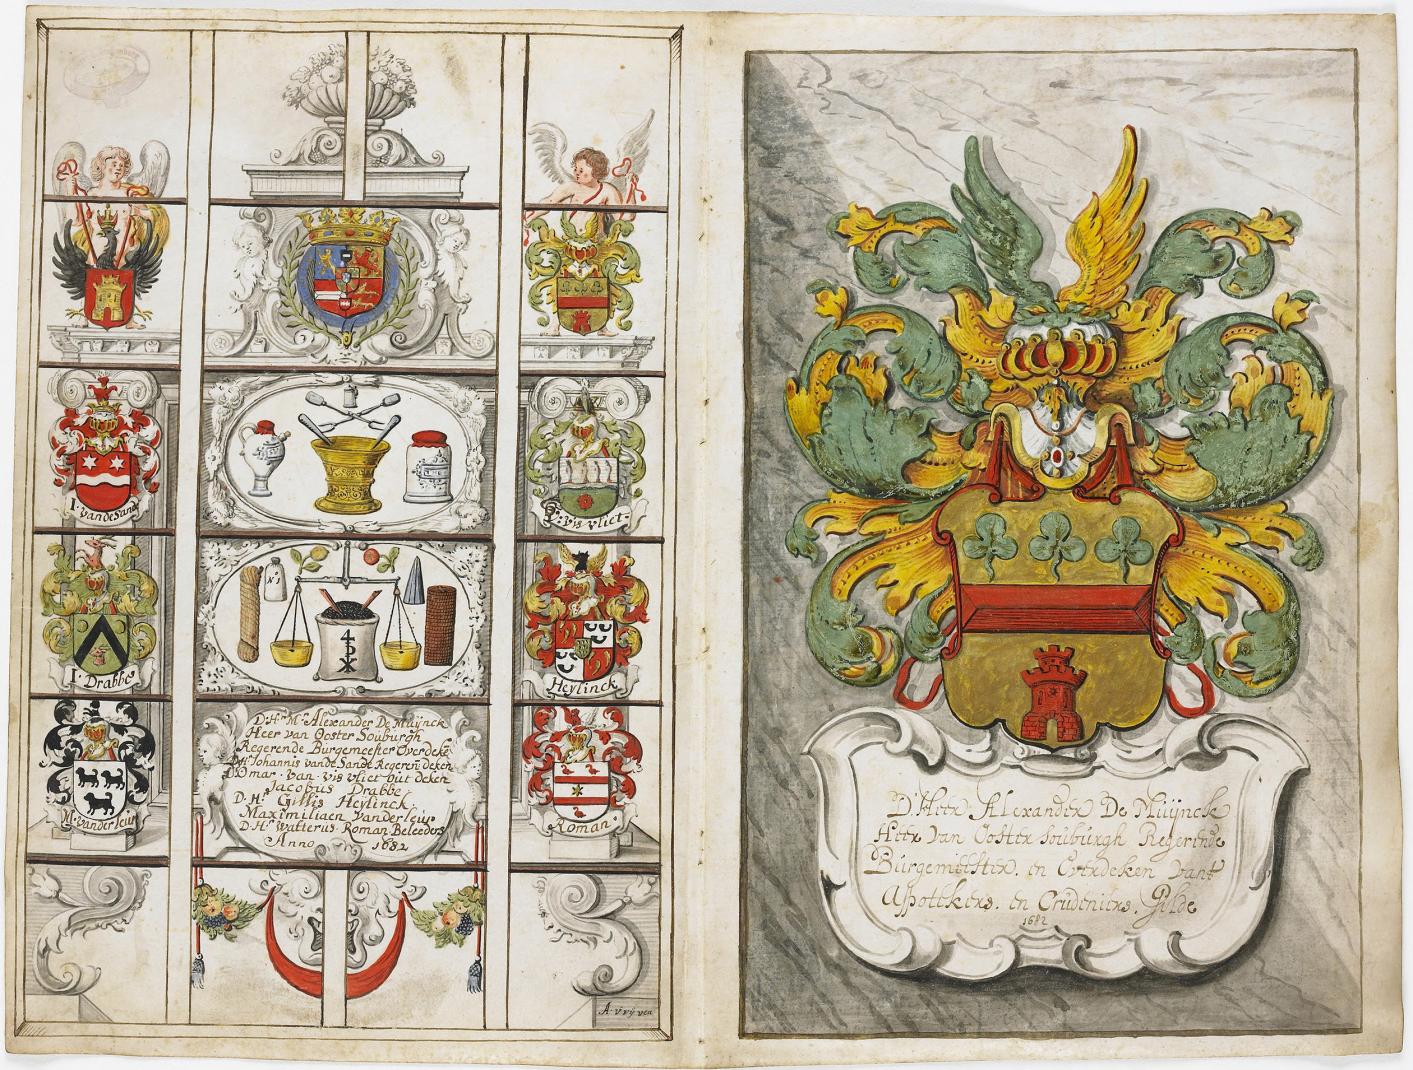 I. van de Sand
P: vis vliet.
I. Drabbe
Heylinck
M. vander leiur
Roman.
N 1
D. Hr Mr Alexander De Muÿnck
Heer van Ooster Souburgh
Regerende Burgemeester Overdeke
D. Hr Johannis vande Sande Regeren deken
Omar. van. vis vliet out deken
Jacobus Drabbe
D. Hr Gillis Heylinck
Maximiliaen vanderleiur
D. Hr walterus. Roman Beleeders
Anno 1682
A. v rij ven
D'Heer Alexander De Muÿnck
Heer van Ooster souburgh Regerende
Burgemeester. en Overdeken vant
Appotekers. en Crudeniers. Gilde
1682